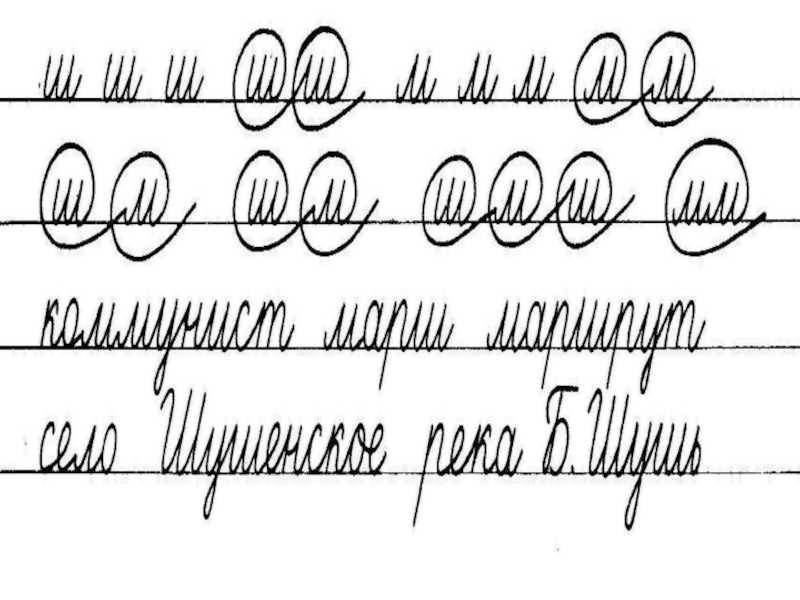 ш ш ш ш ш м м м м м
ш м ш м ш м ш мм
коммунист марш маршрут
село Шушенское река Б.Шушь